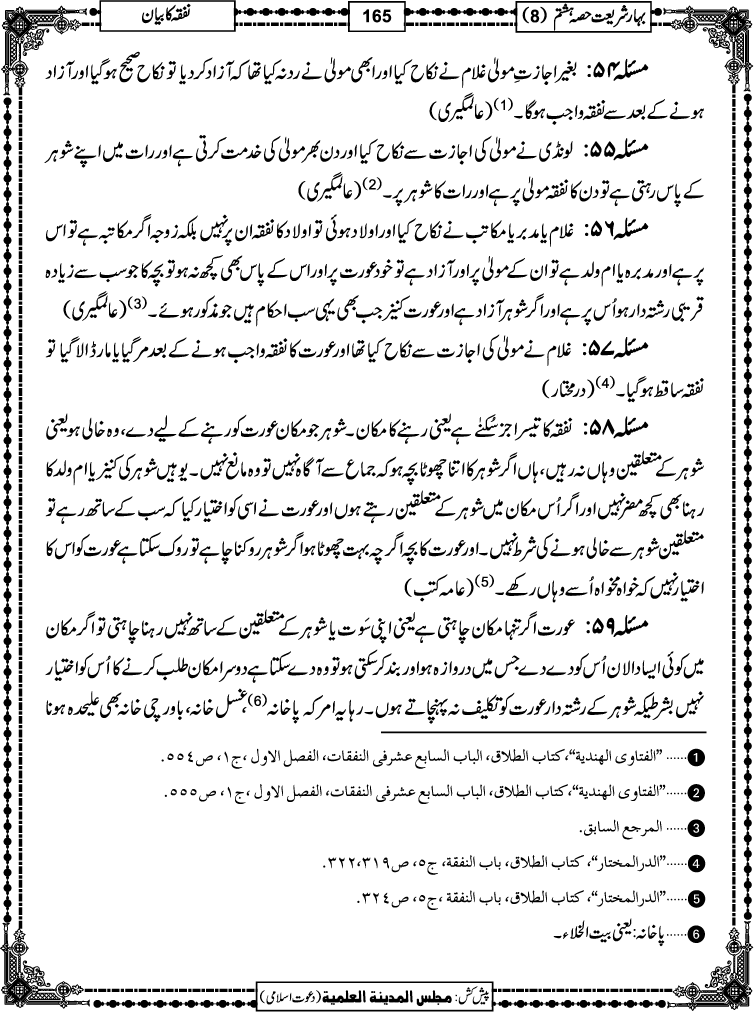 بہار شریعت حصہ ہشتم (8)
165
نفقہ کا بیان
مسئلہ ۵۴: بغیر اجازتِ مولیٰ غلام نے نکاح کیا اور ابھی مولیٰ نے رد نہ کیا تھا کہ آزاد کر دیا تو نکاح صحیح ہوگیا اور آزاد
ہونے کے بعد سے نفقہ واجب ہوگا۔(1) (عالمگیری)
مسئلہ ۵۵: لونڈی نے مولیٰ کی اجازت سے نکاح کیا اور دن بھر مولیٰ کی خدمت کرتی ہے اور رات میں اپنے شوہر
کے پاس رہتی ہے تو دن کا نفقہ مولیٰ پر ہے اور رات کا شوہر پر۔(2) (عالمگیری)
مسئلہ ۵۶: غلام یا مدبر یا مکاتب نے نکاح کیا اور اولاد ہوئی تو اولاد کا نفقہ ان پر نہیں بلکہ زوجہ اگر مکاتبہ ہے تو اس
پر ہے اور مدبرہ یا ام ولد ہے تو ان کے مولیٰ پر اور آزاد ہے تو خود عورت پر اور اس کے پاس بھی کچھ نہ ہو تو بچہ کا جو سب سے زیادہ
قریبی رشتہ دار ہو اُس پر ہے اور اگر شوہر آزاد ہے اور عورت کنیز جب بھی یہی سب احکام ہیں جو مذکور ہوئے۔(3) (عالمگیری)
مسئلہ ۵۷: غلام نے مولیٰ کی اجازت سے نکاح کیا تھا اور عورت کا نفقہ واجب ہونے کے بعد مر گیا یا مار ڈالا گیا تو
نفقہ ساقط ہوگیا۔(4) (درمختار)
مسئلہ ۵۸: نفقہ کا تیسرا جز سُکنٰے ہے یعنی رہنے کا مکان۔ شوہر جو مکان عورت کو رہنے کے لیے دے، وہ خالی ہو یعنی
شوہر کے متعلقین وہاں نہ رہیں، ہاں اگر شوہر کا اتنا چھوٹا بچہ ہو کہ جماع سے آگاہ نہیں تو وہ مانع نہیں۔ یوہیں شوہر کی کنیز یا ام ولد کا
رہنا بھی کچھ مضر نہیں اور اگر اُس مکان میں شوہر کے متعلقین رہتے ہوں اور عورت نے اسی کو اختیار کیا کہ سب کے ساتھ رہے تو
متعلقین شوہر سے خالی ہونے کی شرط نہیں۔ اور عورت کا بچہ اگرچہ بہت چھوٹا ہو اگر شوہر روکنا چاہے تو روک سکتا ہے عورت کو اس کا
اختیار نہیں کہ خواہ مخواہ اُسے وہاں رکھے۔(5) (عامہ کتب)
مسئلہ ۵۹: عورت اگر تنہا مکان چاہتی ہے یعنی اپنی سَوت یا شوہر کے متعلقین کے ساتھ نہیں رہنا چاہتی تو اگر مکان
میں کوئی ایسا دالان اُس کو دے دے جس میں دروازہ ہو اور بند کر سکتی ہو تو وہ دے سکتا ہے دوسرا مکان طلب کرنے کا اُس کو اختیار
نہیں بشرطیکہ شوہر کے رشتہ دار عورت کو تکلیف نہ پہنچاتے ہوں۔ رہا یہ امر کہ پاخانہ(6)، غسل خانہ، باورچی خانہ بھی علیحدہ ہونا
1 ...... ”الفتاوی الهندية“، كتاب الطلاق، الباب السابع عشر فی النفقات، الفصل الاول، ج١، ص٥٥٤.
2 ...... ”الفتاوی الهندية“، كتاب الطلاق، الباب السابع عشر فی النفقات، الفصل الاول، ج١، ص٥٥٥.
3 ...... المرجع السابق.
4 ...... ”الدرالمختار“، كتاب الطلاق، باب النفقة، ج٥، ص٣١٩،٣٢٢.
5 ...... ”الدرالمختار“، كتاب الطلاق، باب النفقة، ج٥، ص٣٢٤.
6 ...... پاخانہ: یعنی بیت الخلاء۔
پیش کش: مجلس المدينة العلمية (دعوت اسلامی)